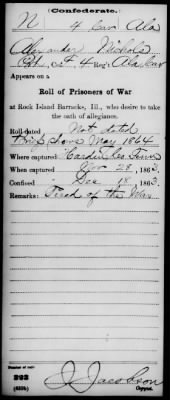 Confederate.
N 4 Cav Ala
Alexander Nichols
Pvt, Co 4 Reg't Ala Cav
Appears on a
Roll of Prisoners of War
at Rock Island Barracks, Ill., who desire to take
the oath of allegiance.
Roll dated Not dated
May 1864
Where captured Tenn
When captured Nov 28, 1863.
Confined Dec 18, 1863.
Remarks: Tired of the War
Number of roll:
393
J. Jacobson
Copyist.